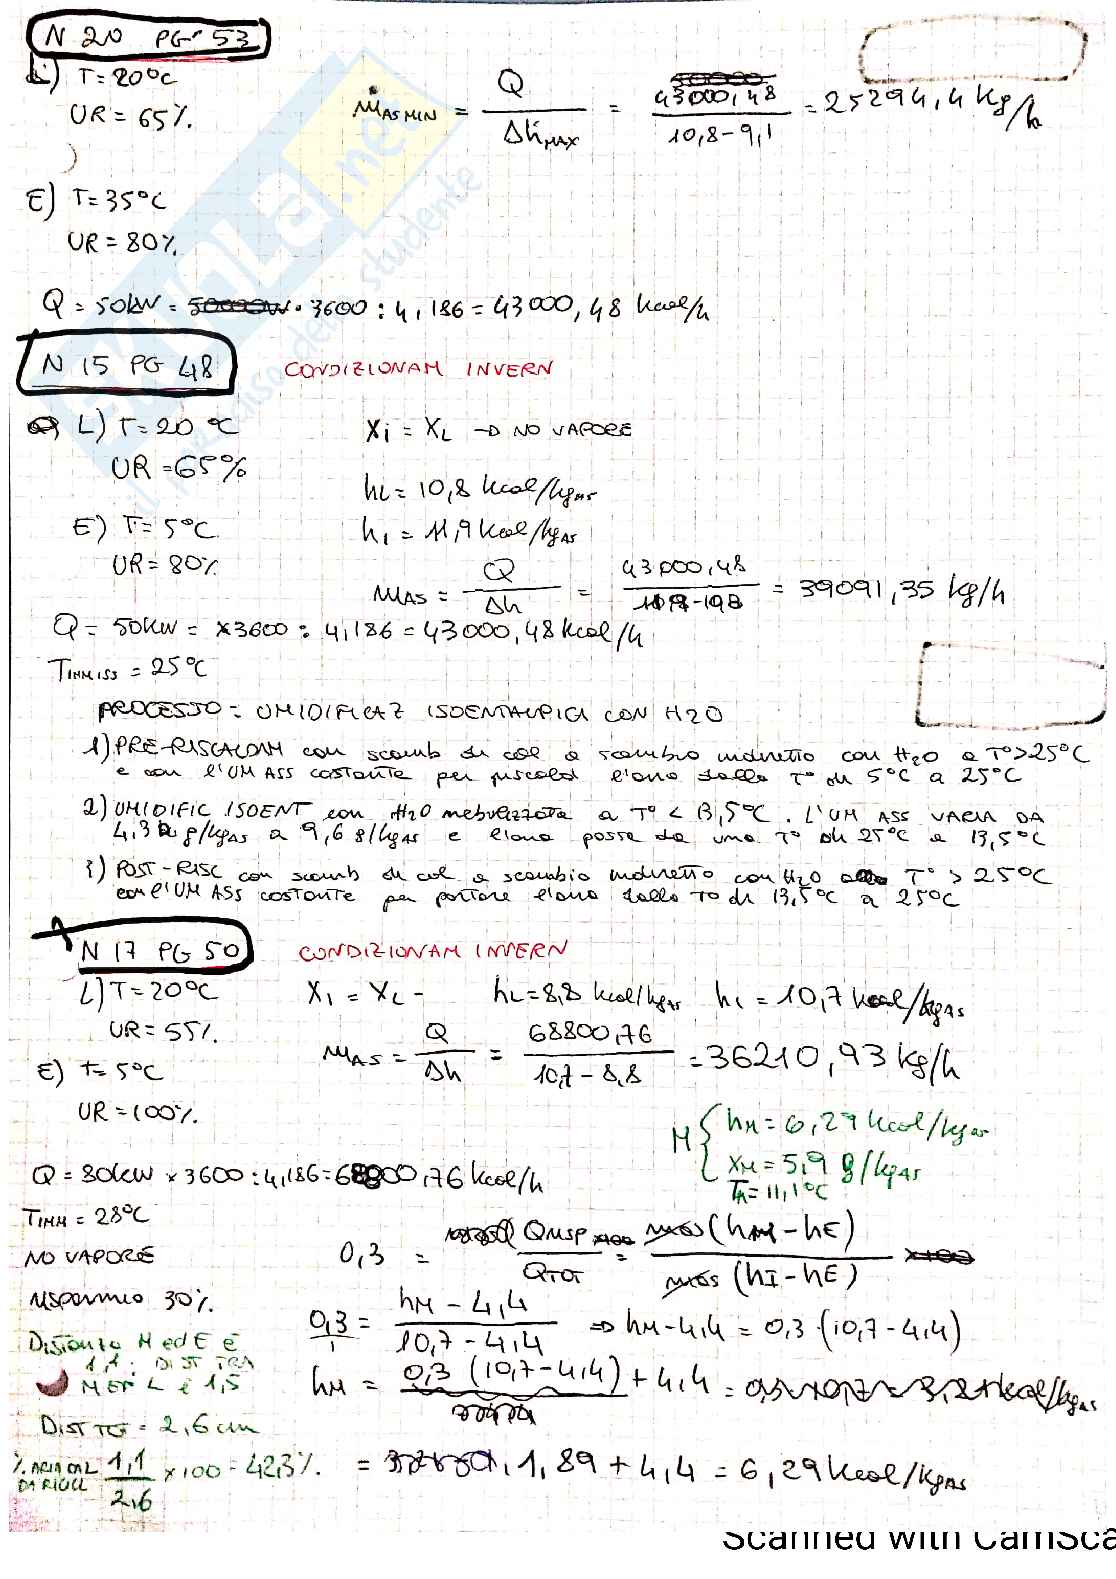 N 20 PG 53
L) T = 20°C
UR = 65%
ṁAS MIN = Q / ΔhMAX = 43000,48 / 10,8-9,1 = 25294,4 kg/h
E) T = 35°C
UR = 80%
Q = 50kW = · 3600 : 4,186 = 43000,48 kcal/h
N 15 PG 48 CONDIZIONAM INVERN
L) T = 20 °C
UR = 65%
Xi = XL → NO VAPORE
hL = 10,8 kcal/kgAS
E) T = 5°C
hI = 11,9 kcal/kgAS
UR = 80%
mAS = Q / Δh = 43000,48 / 11,9-10,8 = 39091,35 kg/h
Q = 50KW = x3600 : 4,186 = 43000,48 kcal/h
TIMMISS = 25°C
PROCESSO: UMIDIFICAZ ISOENTALPICA CON H2O
1) PRE-RISCALDAM con scamb di cal a scambio indiretto con H2O a T°>25°C
e con l'UM ASS costante per riscald l'aria dalla T° di 5°C a 25°C
2) UMIDIFIC ISOENT con H2O nebulizzata a T° < 13,5°C. L'UM ASS VARIA DA
4,3 g/kgAS a 9,6 g/kgAS e l'aria passa da una T° di 25°C a 13,5°C
3) POST-RISC con scamb di cal a scambio indiretto con H2O a T° > 25°C
con l'UM ASS costante per portare l'aria dalla T° di 13,5°C a 25°C
N 17 PG 50 CONDIZIONAM INVERN
L) T = 20°C
XI = XL - hL = 8,8 kcal/kgAS hI = 10,7 kcal/kgAS
UR = 55%
mAS = Q / Δh = 68800,76 / 10,7 - 8,8 = 36210,93 kg/h
E) t = 5°C
UR = 100%
M { hM = 6,29 kcal/kgAS
XM = 5,9 g/kgAS
TM = 11,1°C
Q = 80kW x 3600 : 4,186 = 68800,76 kcal/h
TIMM = 28°C
NO VAPORE
0,3 = QRISP / QTOT = mAS (hM - hE) / mAS (hI - hE)
risparmio 30%
0,3 / 1 = hM - 4,4 / 10,7 - 4,4 ⇒ hM - 4,4 = 0,3 (10,7 - 4,4)
Distanza M ed E è
1,1 : DIST TRA
M ED L è 1,5
hM = 0,3 (10,7 - 4,4) + 4,4 =
DIST TOT = 2,6 cm
% ARIA CAL DA RICICL 1,1 / 2,6 x 100 = 42,3%
= 1,89 + 4,4 = 6,29 kcal/kgAS
Scanned with CamSca